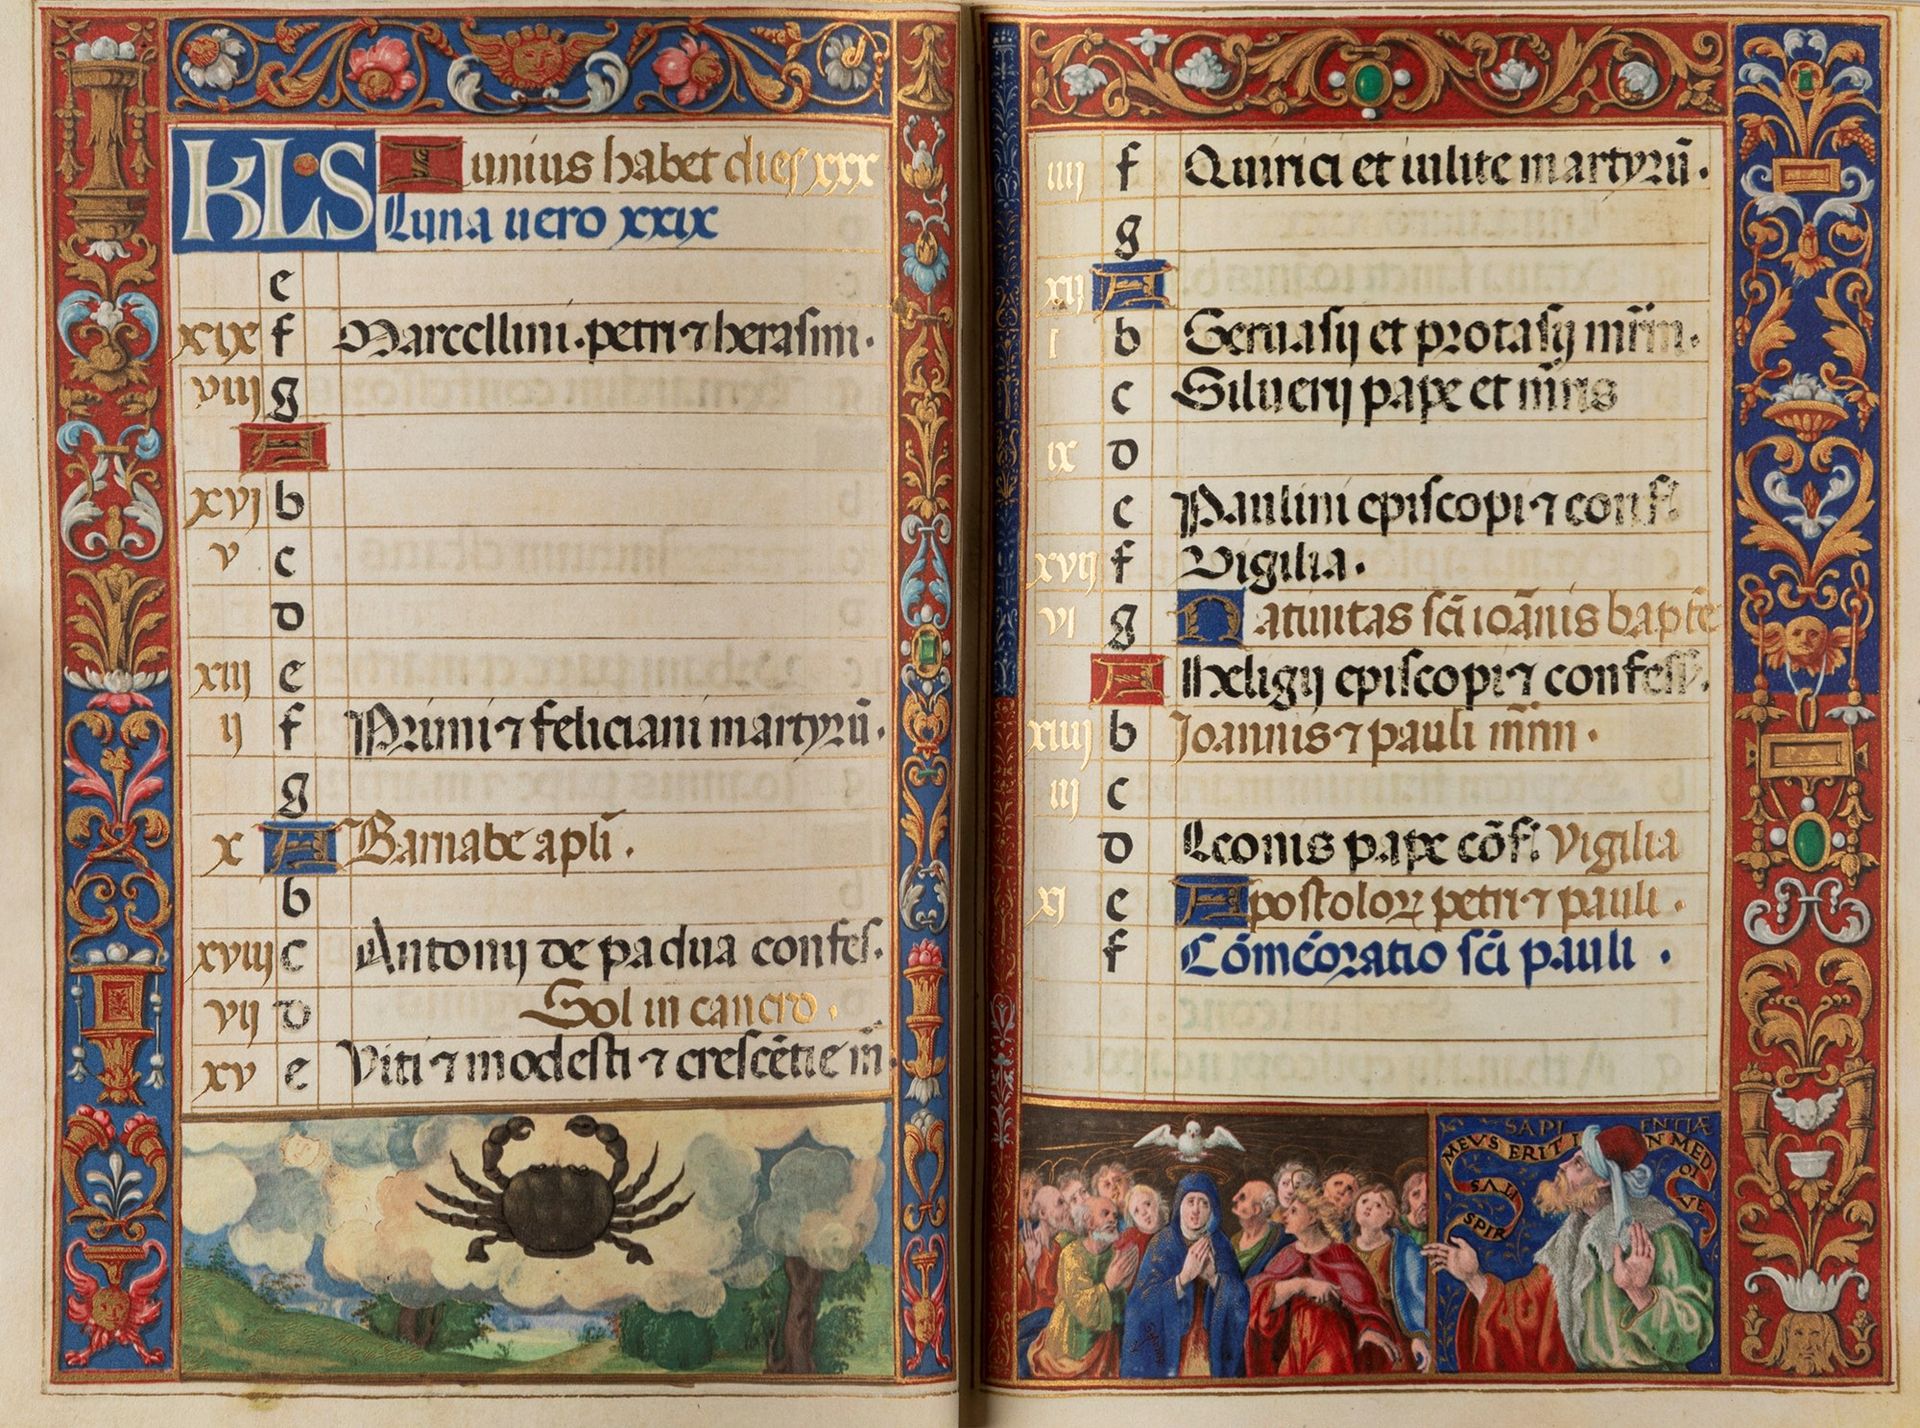 KL·S Iunius habet dies xxx
Luna uero xxix
e
xix f Marcellini · petri · ⁊ herasmi ·
viij g
A
xvj b
v c
d
xiij e
ij f Primi · ⁊ feliciani martyrū ·
g
x A Barnabe apli ·
b
xviij c Antonij de padua confes ·
vij d Sol in cancro ·
xv e Viti · ⁊ modesti · ⁊ crescētie m̄ ·
iiij f Quirici et iulite martyrū ·
g
xij A
i b Geruasij et protasij mr̄m ·
c Siluerij pape et mr̄is
ix d
e Paulini episcopi · ⁊ conf ·
xvij f Vigilia ·
vi g Natiuitas sci ioānis bapte
A Heligij episcopi · ⁊ confess ·
xiiij b Joannis · ⁊ pauli mr̄m ·
iij c
d Leonis pape cōf : Vigilia
xj e Apostoloꝝ petri · ⁊ pauli ·
f Cōmēoratio sci pauli ·
SAPI ENTIÆ
MEVS ERIT I N MED O VE
SALI
SPIR